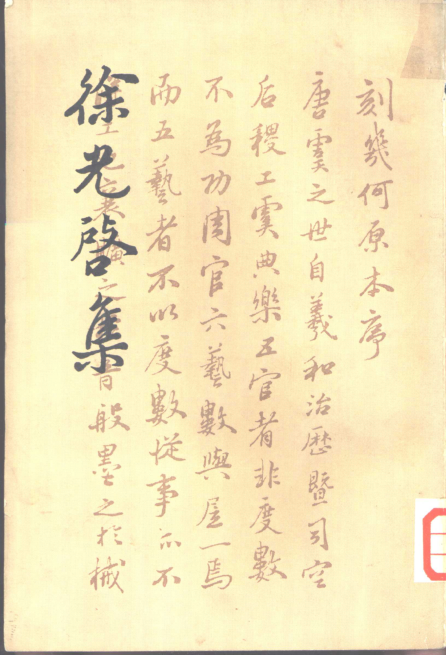 徐光啓集
刻幾何原本序
唐虞之世自羲和治歷暨司空
后稷工虞典樂五官者非度數
不為功周官六藝數與居一焉
而五藝者不以度數從事亦不
般墨之於械